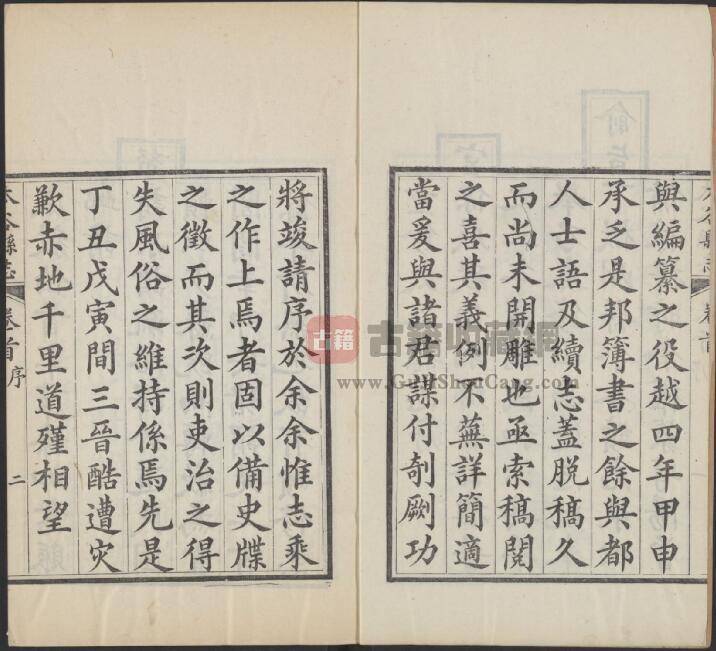 與編纂之役越四年甲申
承乏是邦簿書之餘與都
人士語及續志蓋脫稿久
而尚未開雕也亟索稿閱
之喜其義例不蕪詳簡適
當爰與諸君謀付剞劂功
將竣請序於余余惟志乘
之作上焉者固以備史牒
之徵而其次則吏治之得
失風俗之維持係焉先是
丁丑戊寅間三晉酷遭災
歉赤地千里道殣相望
太谷縣志 卷首 序 二
古籍收藏網
www.GujiShouCang.com